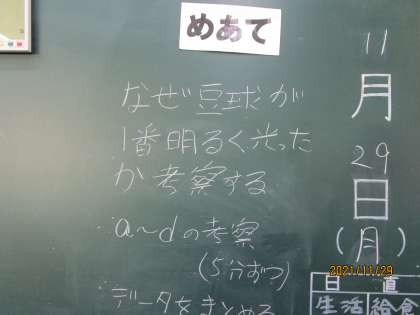 めあて
11月29日(月)
なぜ豆球が
1番明るく光った
か考察する
a~dの考察
(5分ずつ)
データをまとめる
2021/11/29
日直
生活 給食